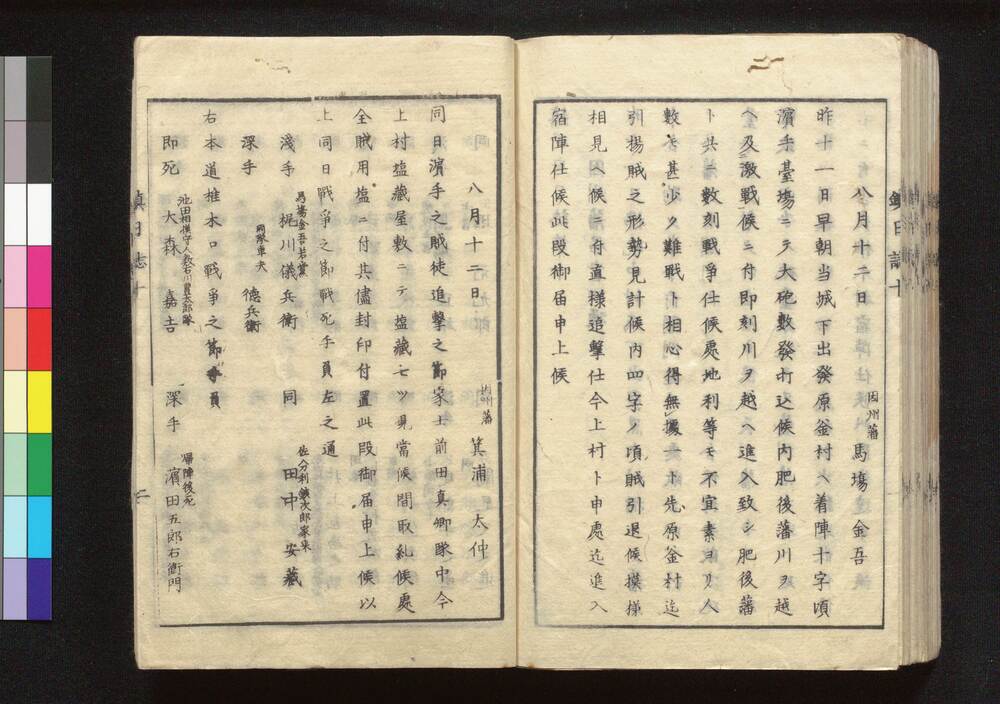 鎮日誌十
八月十二日
因州藩
馬塲金吾
昨十一日早朝当城下出發原釜村ヘ着陣十字頃
濱手臺塲ニテ大砲數發打込候内肥後藩川ヲ越
ヘ及激戰候ニ付即刻川ヲ越ヘ進入致シ肥後藩
ト共ニ數刻戰爭仕候處地利等モ不宜素ヨリ人
數モ甚少ク難戰ト相心得無據ト先原釜村迄
引揚賊之形勢見計候内四字ノ頃賊引退候摸様
相見ヘ候ニ付直様追撃仕今上村ト申處迄進入
宿陣仕候此段御届申上候
同 八月十二日
因州藩
箕浦太仲
同日濱手之賊徒追撃之節家士前田真卿隊中今
上村塩藏屋敷ニテ塩藏七ツ見當候間取糺候處
全賊用塩ニ付其儘封印付置此段御届申上候以
上同日戰爭之節戰死手負左之通
馬塲金吾若黨
佐分利鐵次郎家来
淺手 梶川儀兵衛 同 田中安藏
同隊車夫
深手 德兵衛
右本道椎木口戰爭之節手負
池田相摸守人数石川豊太郎隊
歸陣後死
即死 大森嘉吉 深手 濱田五郎右衛門
鎮日誌十 二